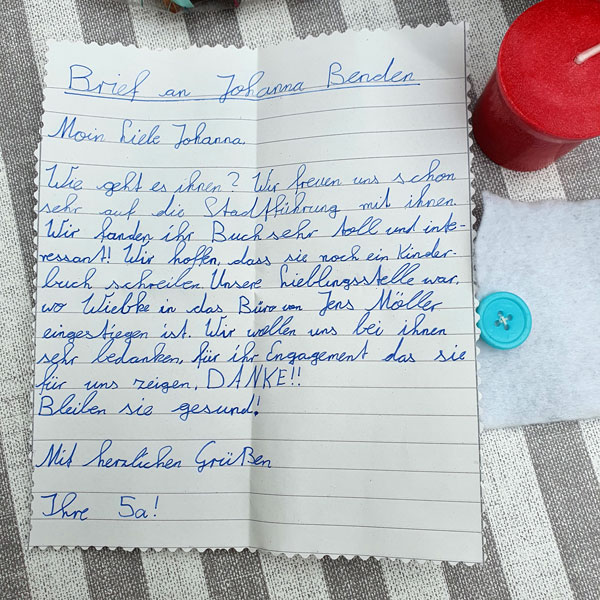 Brief an Johanna Benden
Moin liebe Johanna,
Wie geht es ihnen? Wir freuen uns schon
sehr auf die Stadtführung mit ihnen.
Wir fanden ihr Buch sehr toll und inte-
ressant! Wir hoffen, dass sie noch ein Kinder-
buch schreiben. Unsere Lieblingsstelle war,
wo Wiebke in das Büro von Jens Möller
eingestiegen ist. Wir wollen uns bei ihnen
sehr bedanken, für ihr Engagement das sie
für uns zeigen, DANKE!!
Bleiben sie gesund!
Mit herzlichen Grüßen
Ihre 5a!